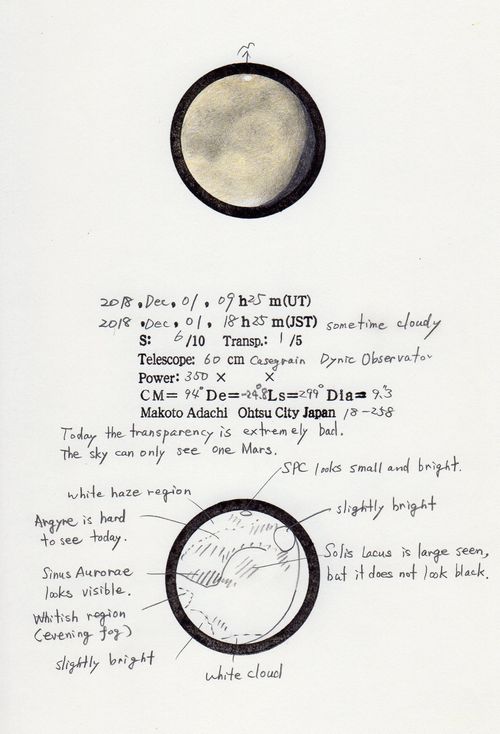 2018, Dec, 01, 09 h 25 m (UT)
2018, Dec, 01, 18 h 25 m (JST) sometime cloudy
S: 6 /10 Transp.: 1 /5
Telescope: 60 cm Casegrain Dynic Observator
Power: 350 × ×
CM= 94° De= -24.8° Ls= 299° Dia= 9."3
Makoto Adachi Ohtsu City Japan 18-258
Today the transparency is extremely bad.
The sky can only see one Mars.
SPC looks small and bright.
white haze region
slightly bright
Argyre is hard
to see today.
Solis Lacus is large seen,
but it does not look black.
Sinus Aurorae
looks visible.
Whitish region
(evening fog)
slightly bright
white cloud